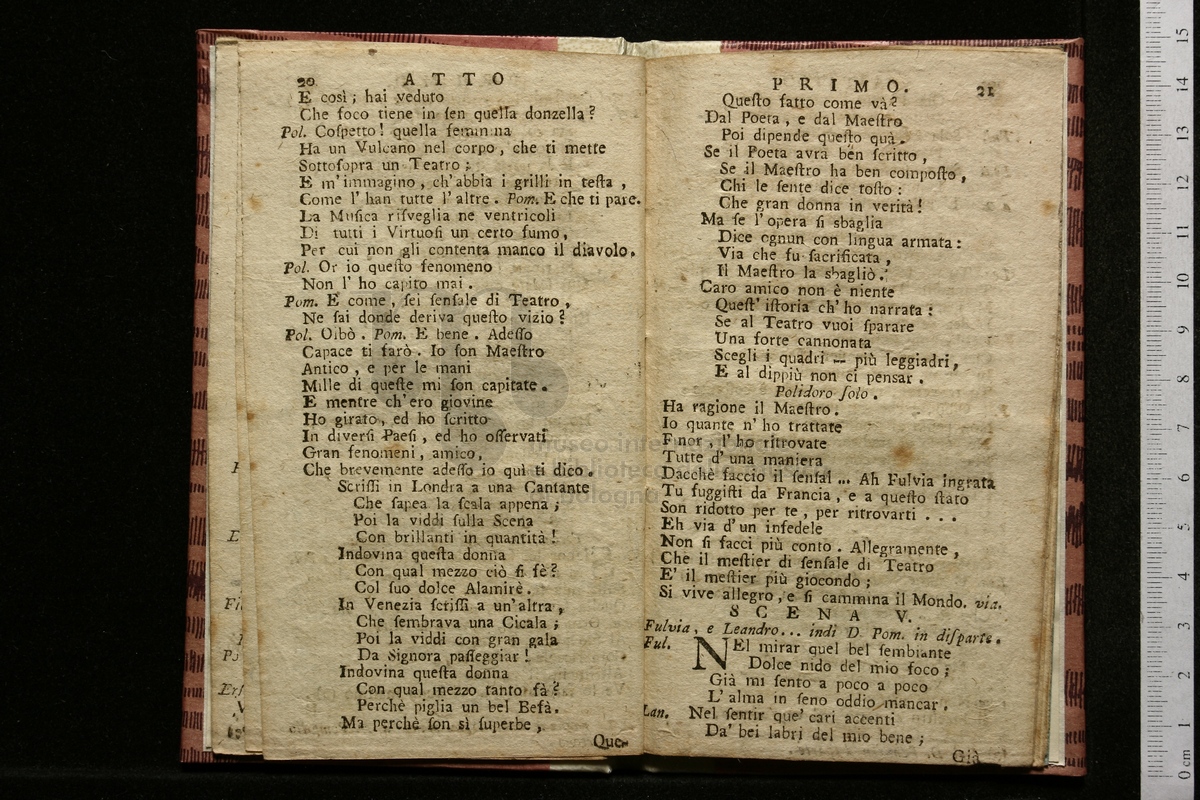 20 ATTO
E così; hai veduto
Che foco tiene in ſen quella donzella?
Pol. Coſpetto! quella femmina
Ha un Vulcano nel corpo, che ti mette
Sottoſopra un Teatro:
E m'immagino, ch'abbia i grilli in teſta,
Come l'han tutte l'altre. Pom. E che ti pare.
La Muſica riſveglia ne ventricoli
Di tutti i Virtuoſi un certo fumo,
Per cui non gli contenta manco il diavolo.
Pol. Or io queſto fenomeno
Non l'ho capito mai.
Pom. E come, ſei ſenſale di Teatro,
Ne ſai donde deriva queſto vizio?
Pol. Oibò. Pom. E bene. Adeſſo
Capace ti farò. Io ſon Maeſtro
Antico, e per le mani
Mille di queſte mi ſon capitate.
E mentre ch'ero giovine
Ho girato, ed ho ſcritto
In diverſi Paeſi, ed ho oſſervati
Gran fenomeni, amico,
Che brevemente adeſſo io quì ti dico.
Scriſſi in Londra a una Cantante
Che ſapea la ſcala appena;
Poi la viddi ſulla Scena
Con brillanti in quantità!
Indovina queſta donna
Con qual mezzo ciò ſi fè?
Col ſuo dolce Alamirè.
In Venezia ſcriſſi a un'altra,
Che ſembrava una Cicala;
Poi la viddi con gran gala
Da Signora paſſeggiar!
Indovina queſta donna
Con qual mezzo tanto fà?
Perchè piglia un bel Befà.
Ma perchè ſon sì ſuperbe,
Que-
PRIMO. 21
Queſto fatto come và?
Dal Poeta, e dal Maeſtro
Poi dipende queſto quà.
Se il Poeta avrà ben ſcritto,
Se il Maeſtro ha ben compoſto,
Chi le ſente dice toſto:
Che gran donna in verità!
Ma ſe l'opera ſi sbaglia
Dice ognun con lingua armata:
Via che fu ſacrificata,
Il Maeſtro la sbagliò.
Caro amico non è niente
Queſt' iſtoria ch'ho narrata:
Se al Teatro vuoi ſparare
Una forte cannonata
Scegli i quadri – più leggiadri,
E al dippiù non ci penſar.
Polidoro ſolo.
Ha ragione il Maeſtro.
Io quante n'ho trattate
Finor, l'ho ritrovate
Tutte d'una maniera
Dacchè faccio il ſenſal ... Ah Fulvia ingrata
Tu fuggiſti da Francia, e a queſto ſtato
Son ridotto per te, per ritrovarti . . .
Eh via d'un infedele
Non ſi facci più conto. Allegramente,
Che il meſtier di ſenſale di Teatro
E' il meſtier più giocondo;
Si vive allegro, e ſi cammina il Mondo. via.
SCENA V.
Fulvia, e Leandro... indi D. Pom. in diſparte.
Ful. NEl mirar quel bel ſembiante
Dolce nido del mio foco;
Già mi ſento a poco a poco
L'alma in ſeno oddio mancar.
Lan. Nel ſentir que' cari accenti
Da' bei labri del mio bene;
Già